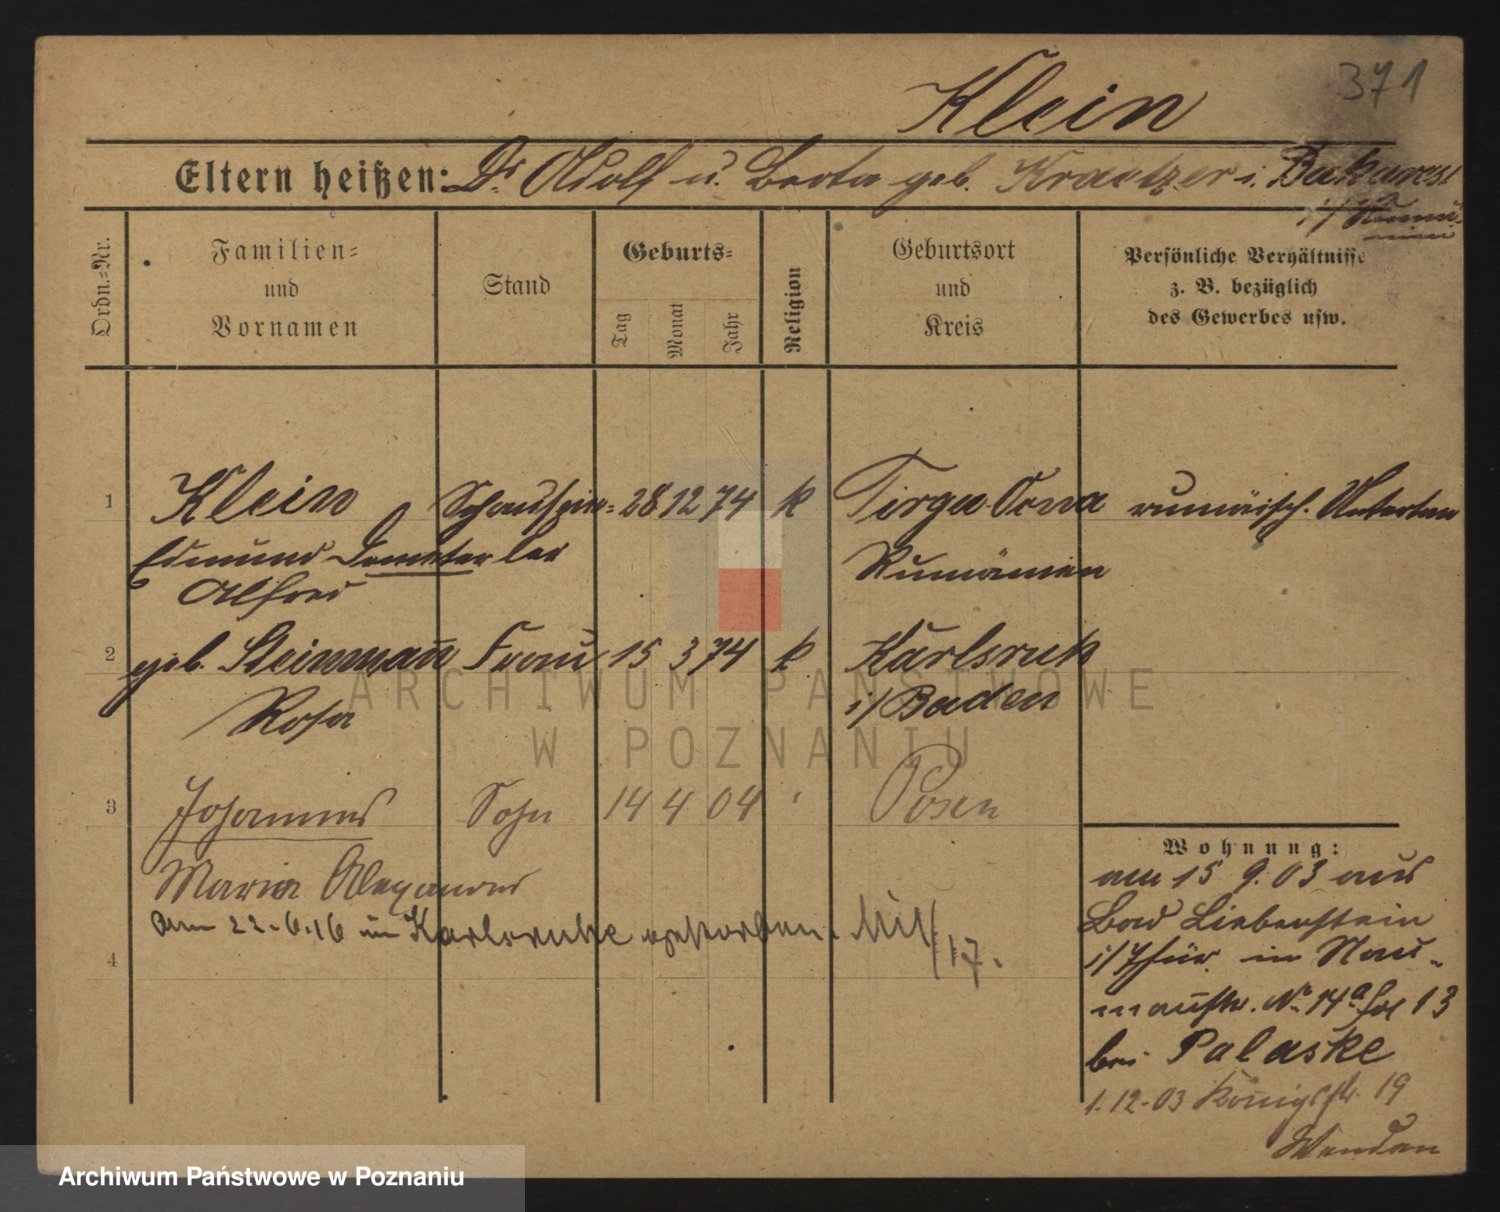 371
Klein
Eltern heißen: Dr Adolf u. Berta geb. Krautzer i. Bukarest
i/ Rumä-
nien
Ordn.-Nr.
Familien-
und
Vornamen
Stand
Geburts-
Tag
Monat
Jahr
Religion
Geburtsort
und
Kreis
Persönliche Verhältnisse
z. B. bezüglich
des Gewerbes usw.
1 Klein Schauspie- 28 12 74 k Tirgu Ocna rumänisch. Untertan
Edmund Demeter ler Rumänien
Alfred
2 geb. Steinmann Frau 15 3 74 k Karlsruh
Rosa i/ Baden
3 Johannes Sohn 14 4 04 Posen
Maria Alexander
am 22.6.16 in Karlsruhe gestorben. 17.
4
Wohnung:
am 15 9. 03 aus
Bad Liebenstein
i/ Thür. in Nau-
mannstr. No 14a bei 13
bei Palaske
1.12.03 Königstr. 19
Wenden
ARCHIWUM PAŃSTWOWE
W POZNANIU
Archiwum Państwowe w Poznaniu